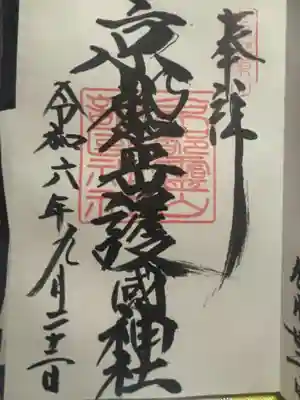 奉拝
京都霊山護國神社
令和六年九月二十二日